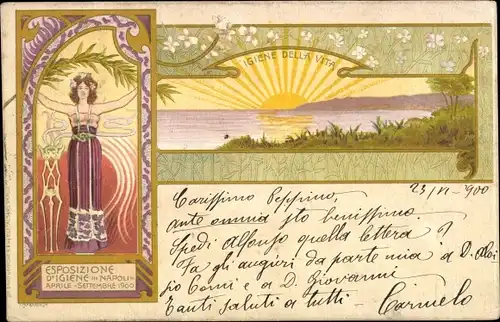 IGIENE DELLA VITA
ESPOSIZIONE
D'IGIENE IN NAPOLI
APRILE - SETTEMBRE 1900
23/VI - 900
Carissimo Peppino,
ante omnia sto benissimo.
Spedì Alfonso quella lettera?
Fa gli auguri da parte mia a D. Aloi
sio Comi e a D. Giovanni
Tanti saluti a tutti - Carmelo